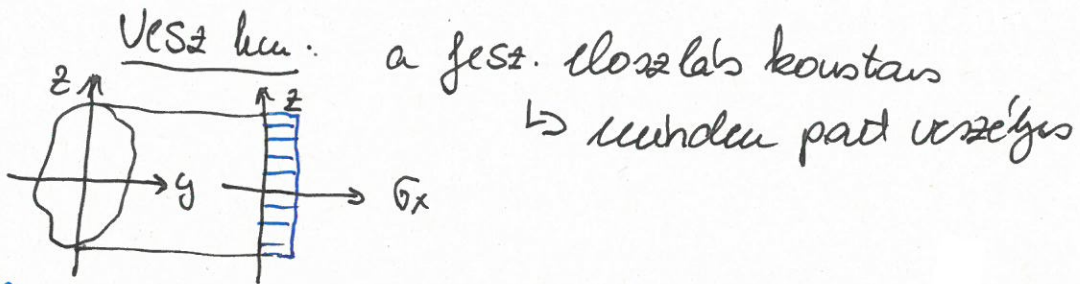 Vesz km.
a fesz. eloszlás konstans
↳ minden pont veszélyes
z
z
y
σx